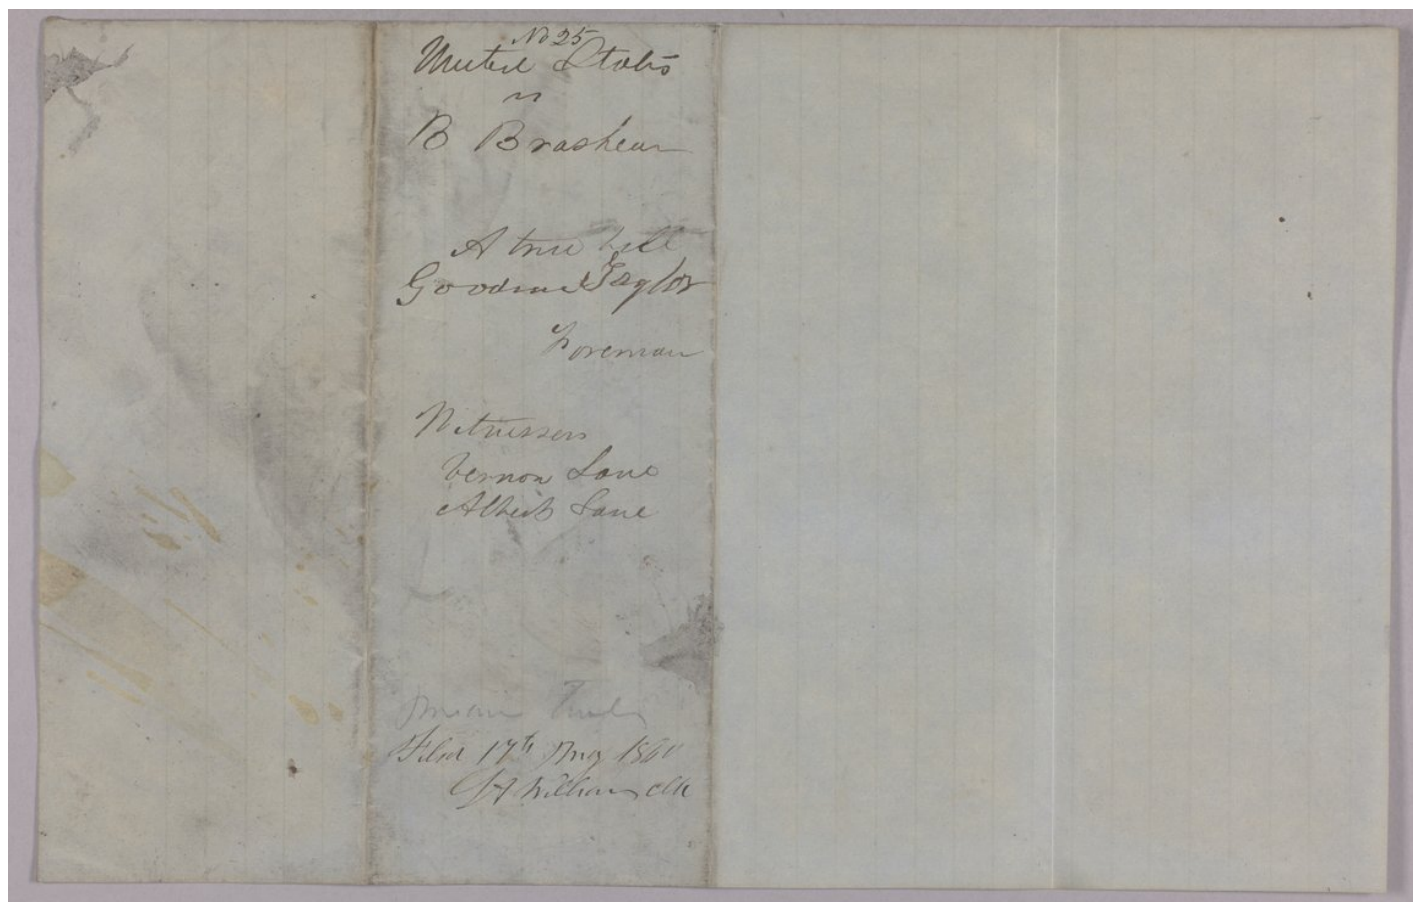 No 25
United States
vs
B Brashear
A true bill
Goodman Taylor
Foreman
Witnesses
Vernon Lane
Albert Lane
Filed 17th Aug 1860
Williams Clk